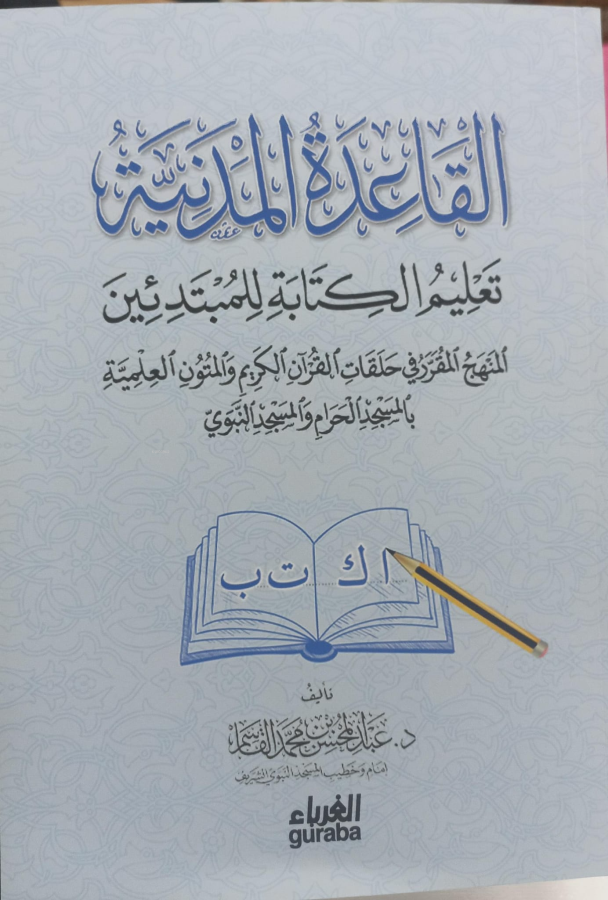 القَاعِدَةُ المَدَنِيَّةُ
تَعْلِيمُ الكِتَابَةِ لِلْمُبْتَدِئِينَ
المَنْهَجُ المُقَرَّرُ فِي حَلَقَاتِ القُرْآنِ الكَرِيمِ وَالمُتُونِ العِلْمِيَّةِ
بِالمَسْجِدِ الحَرَامِ وَالمَسْجِدِ النَّبَوِيّ
ا ك ت ب
تأليف
د. عبد المحسن بن محمد القاسم
إمام وخطيب المسجد النبوي الشريف
الغرباء
guraba